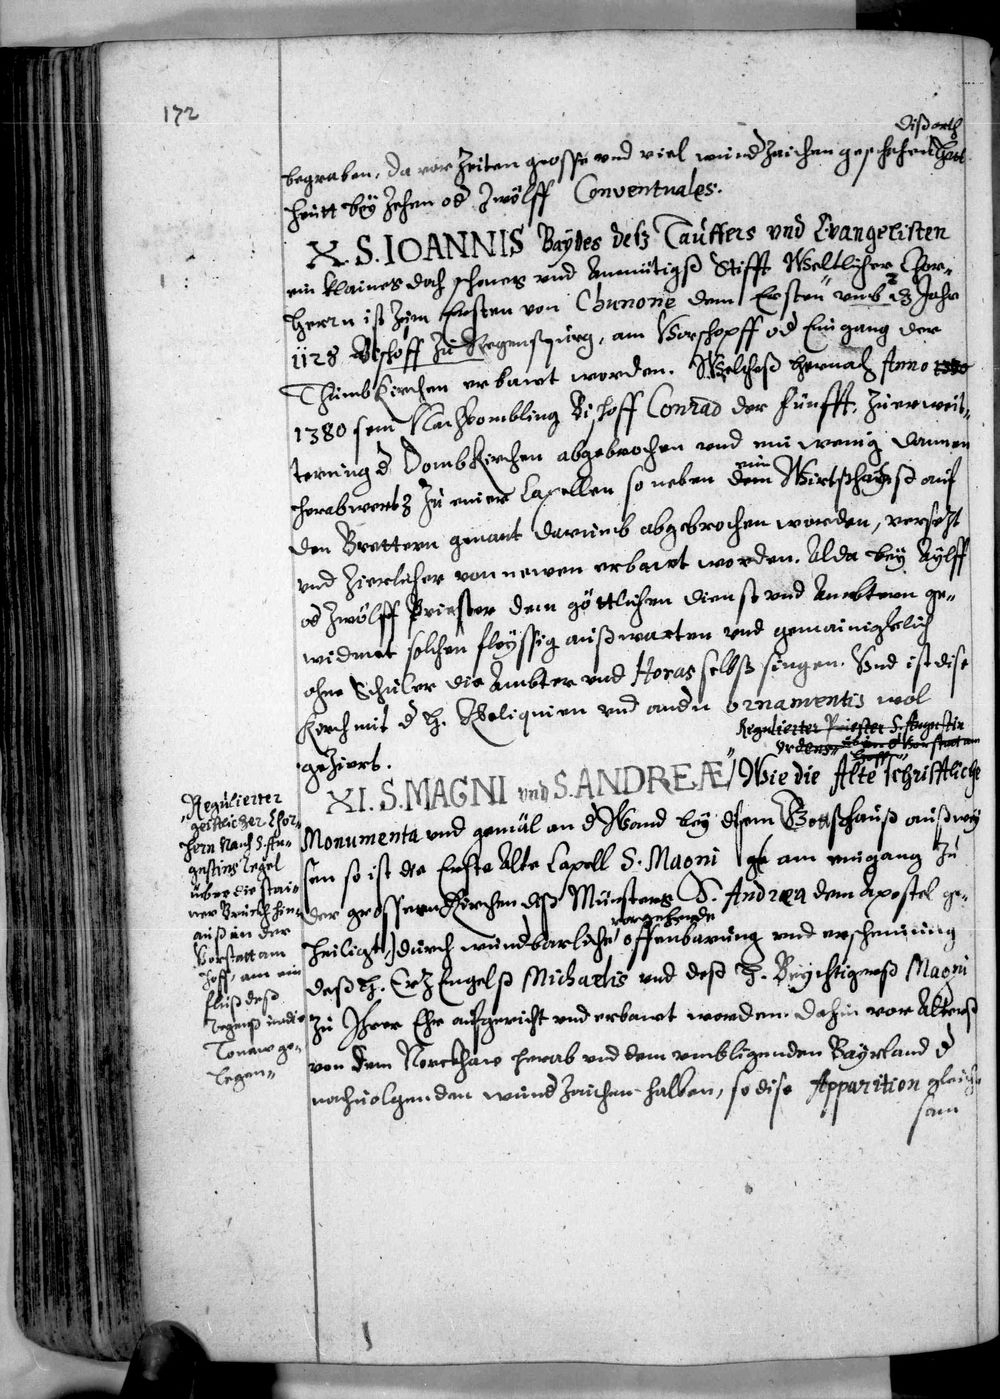 172
dißorth
begraben, da vor Zeiten grosse vnd viel wundZaichen geschehen. Hat
heütt beÿ Zehen od Zwölff Conventuales.
X. S. IOANNIS Baÿdes deß Tauffers vnd Evangelisten
ein klaines doch schenes vnd Anmütigß Stifft Weltlicher Chor-
herrn ist Zum Ersten von Chunone dem Ersten vmbs Jahr
1128 Bischoff Zu Regenspurg, am Vorschopff od Eingang der
Thumbkirchen erbawt worden. Welcheß hernach Anno
1380 sein Nachkombling Bischoff Conrad der fünfft, Zu erweit-
terung d Dombkirchen abgebrochen vnd ein wenig dannen
herabwerts Zu einer Capellen so neben dem ein Wirtshauß auf
den Brettern genant darumb abgebrochen worden, versetzt
vnd Zierlicher von newen erbawt worden. Alda beÿ Aÿlff
od Zwölff Priester dem göttlichen dienst vnd Ambtern ge-
widmet solchen fleÿssig außwarten vnd gemainigklich
ohne Schuler die Ambter vnd Horas selbß singen. Vnd ist dise
Kirch mit d H. Reliquien vnd andn ornamentis wol
geziert.
Regulierter Priester S. Augustin
Ordens
XI. S. MAGNI vnd S. ANDREÆ / Wie die Alte schrifftliche
Monumenta vnd gemäl an d Wand beÿ disem Gottßhauß außwey
sen so ist die Erste Alte Capell S. Magni am eingang Zu
der grossern Kirchen deß Münsters S. Andrea dem Apostel ge-
heiligt durch wundbarliche vorgehende offenbarung vnd erscheinung
deß H. ErzEngelß Michaelis vnd deß H. Beÿchtigerß Magni
Zu Ihrer Ehr aufgericht vnd erbawt worden. Dahin vor Alterß
von dem Norckhaw herab vnd dem vmbligenden Baÿrland d
nachuolgenden wundZaichen halben, so dise Apparition gleich-
sam
Regulierter
geistlicher Chor-
hern Nach S. Au-
gustins regel
über die stai-
ner Bruckh hin-
auß in der
Vorstatt am
Hoff, am ein
fluß deß
Regenß in die
Tonaw ge-
legen